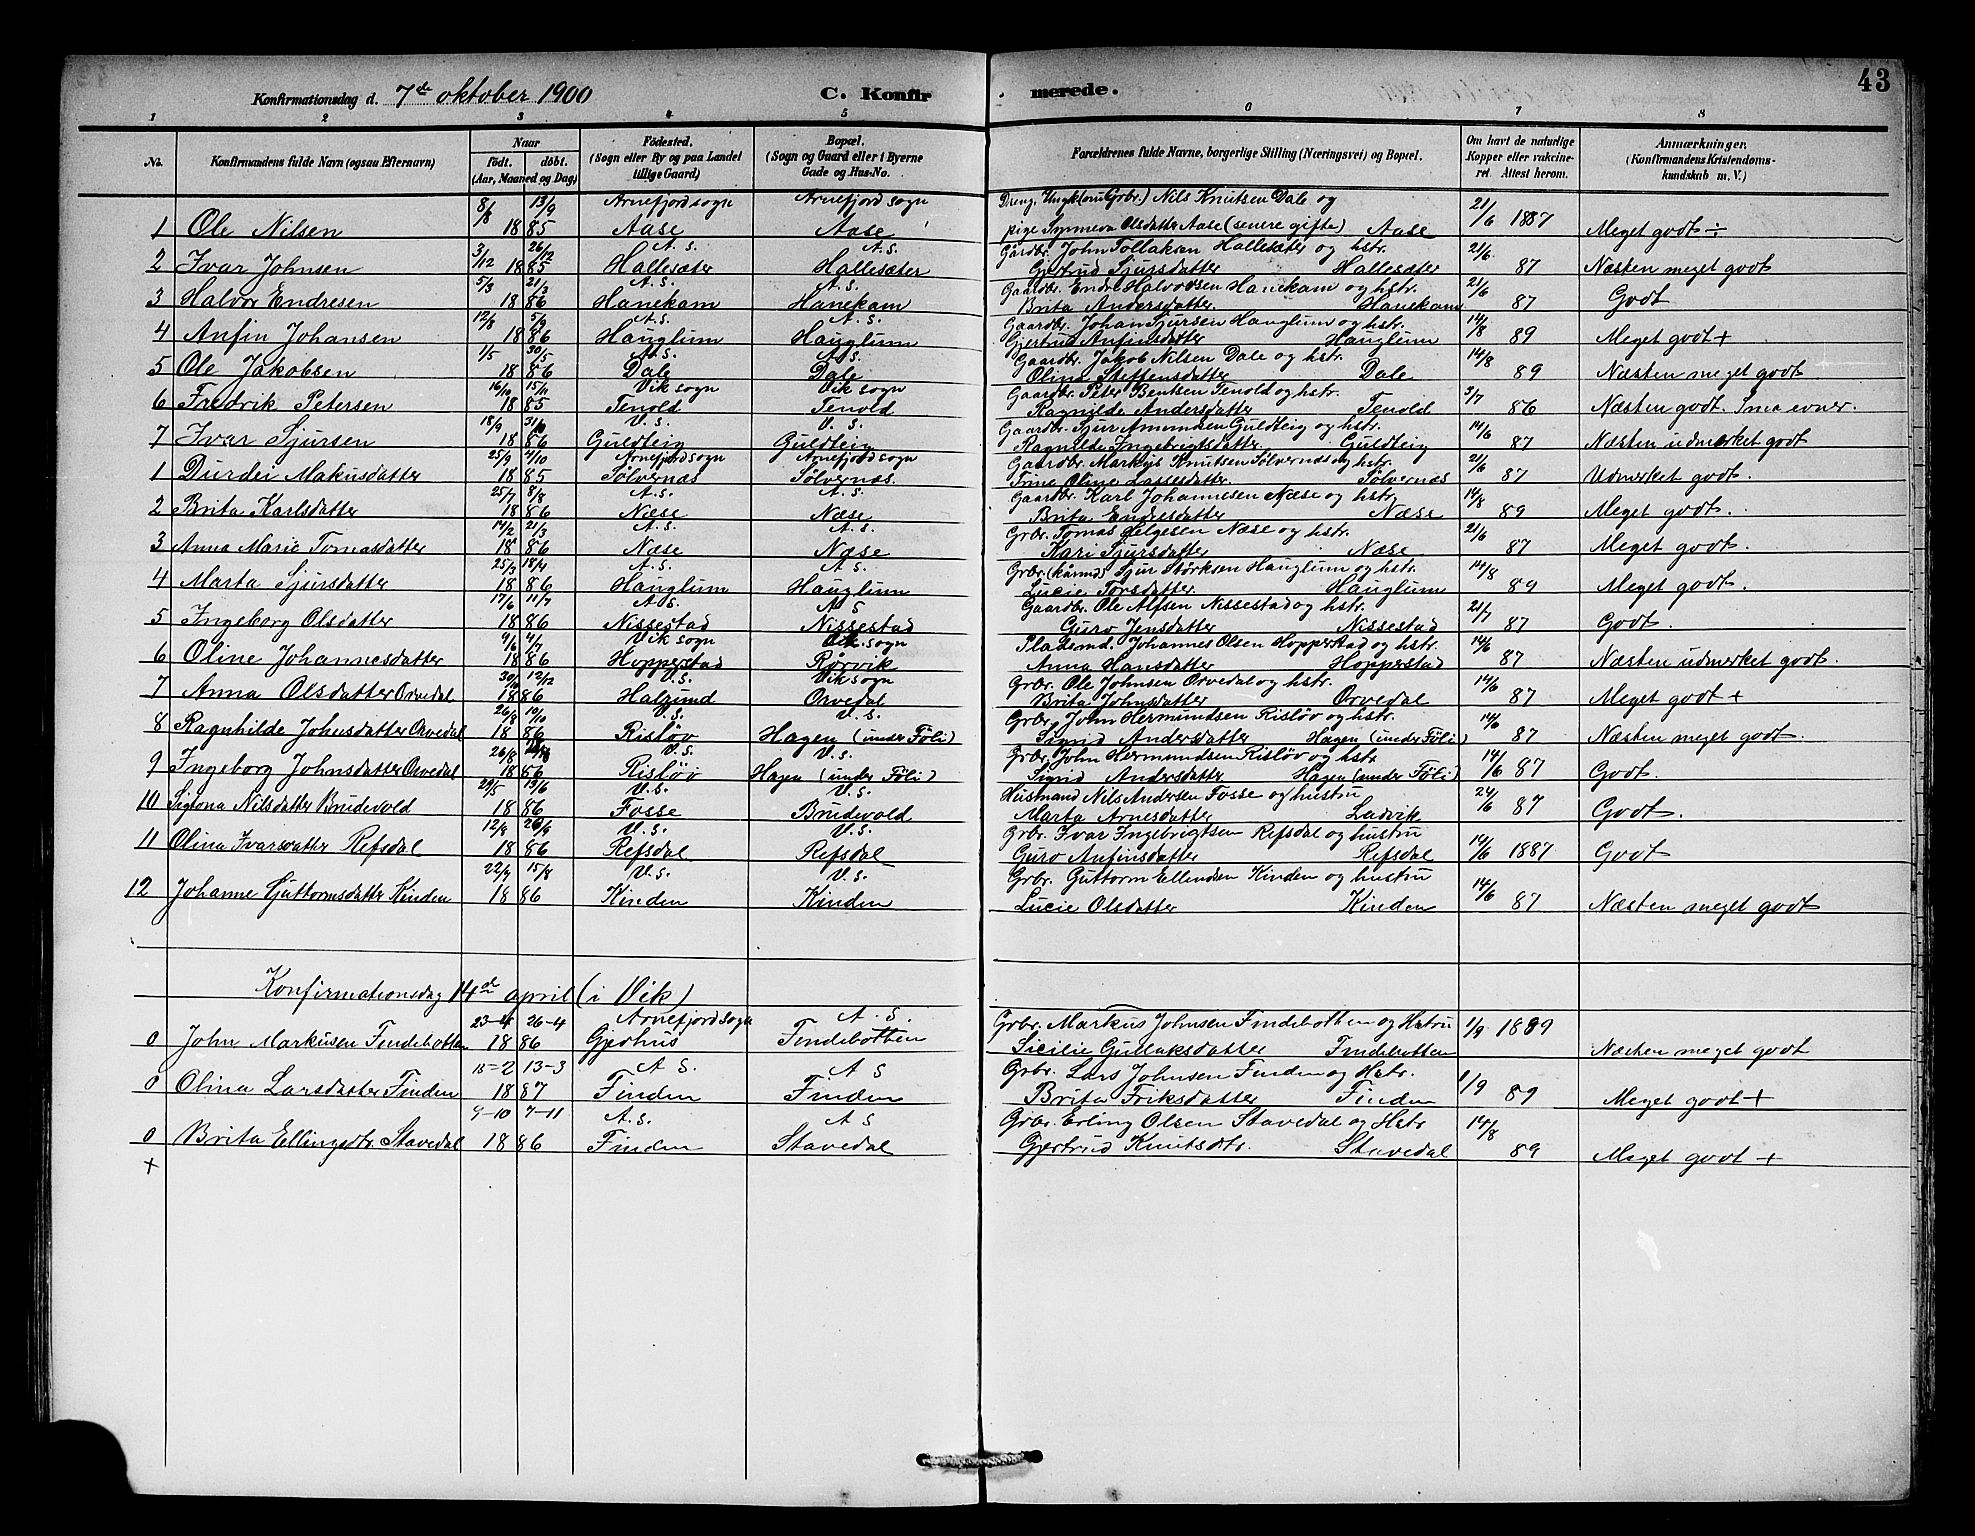 43
Konfirmationsdag d. 7de oktober 1900 C. Konfirmerede.
1 2 3 4 5 6 7 8
No. Konfirmandens fulde Navn (ogsaa Efternavn) Naar født. døbt. (Aar, Maaned og Dag) Fødested. (Sogn eller By og paa Landet tillige Gaard) Bopæl. (Sogn og Gaard eller i Byerne Gade og Hus-No. Forældrenes fulde Navne, borgerlige Stilling (Næringsvei) og Bopæl. Om havt de naturlige Kopper eller vakcineret. Attest herom. Anmærkninger. (Konfirmandens Kristendomskundskab m. V.)
8/8 13/9 Arnefjord sogn Arnefjord sogn Dreng, Ungk (nu Grbr.) Nils Knutsen Dale og 21/6 1887
1 Ole Nilsen 1885 Aase Aase pige Synneva Olsdatter Aase (senere gifte) Aase Meget godt ÷
3/12 26/12 A. S. A. S. Gårdbr. John Tollaksen Hallesæter og hstr. 21/6
2 Ivar Johnsen 1885 Hallesæter Hallesæter Gjertrud Sjursdatter Hallesæter 87 Næsten meget godt
5/3 21/3 A. S. A. S. Gaardbr. Endre Halvorsen Hanekam og hstr. 21/6
3 Halvor Endresen 1886 Hanekam Hanekam Brita Andersdatter Hanekam 87 Godt
12/8 5/9 A. S. A. S. Gaardbr. Johan Sjursen Hauglum og hstr. 14/8
4 Anfin Johansen 1886 Hauglum Hauglum Gjertrud Anfinsdatter Hauglum 89 Meget godt +
1/5 30/5 A. S. A. S. Gaardbr. Jakob Nilsen Dale og hstr. 14/8
5 Ole Jakobsen 1886 Dale Dale Olina Steffensdatter Dale 89 Næsten meget godt
16/10 15/11 Vik sogn Vik sogn Gaardbr. Peter Bentsen Tenold og hstr. 3/7
6 Fredrik Petersen 1885 Tenold Tenold Ragnilde Andersdatter Tenold 86 Næsten godt. Sma evner.
18/9 31/10 V. S. V. S. Gaardbr. Sjur Guldteig og hstr. 14/6
7 Ivar Sjursen 1886 Guldteig Guldteig Ragnilde Ingebrigtsdatter Guldteig 87 Næsten udmerket godt
25/9 4/10 Arnefjord sogn Arnefjord sogn Gaardbr. Markus Knutsen Sølvernæs og hstr. 21/6
1 Durdei Makusdatter 1885 Sølvernæs Sølvernæs. Trine Oline Lassesdatter. Sølvernæs 87 Udmerket godt
25/7 8/8 A. S. A. S. Gaardbr. Karl Johannesen Næse og hstr. 14/8
2 Brita Karlsdatter 1886 Næse Næse Brita Endresdatter Næse 89 Meget godt.
14/2 21/3 A. S. A. S. Grbr. Tomas Helgesen Næse og hstr. 21/6
3 Anna Marie Tomasdatter 1886 Næse Næse Kari Sjursdatter Næse 87 Meget godt.
25/3 18/4 A. S. A. S. Grbr. (kårmd) Sjur Størksen Hauglum og hstr. 14/8
4 Marta Sjursdatter 1886 Hauglum Hauglum Lucie Torsdatter. Hauglum 89 Meget godt.
17/6 11/7 A. S. A. S Gaardbr. Ole Alfsen Nissestad og hstr. 21/7
5 Ingeborg Olsdatter 1886 Nissestad Nissestad Guro Jensdatter Nissestad 87 Godt.
9/6 4/7 Vik sogn Vik sogn Pladsmd. Johannes Olsen Hopperstad og hstr. 14/6
6 Oline Johannesdatter 1886 Hopperstad Rørvik Anna Hansdatter Hopperstad 87 Næsten udmerket godt.
30/10 12/12 V. S. Vik sogn Grbr. Ole Johnsen Orvedal og hstr. 14/6
7 Anna Olsdatter Orvedal 1886 Halsund Orvedal Brita Johnsdatter Orvedal 87 Meget godt +
26/8 10/10 V. S. V. S. Grbr. John Hermundsen Risløv og hstr. 14/6
8 Ragnhilde Johnsdatter Orvedal 1886 Risløv Hagen (under Føli) Sigrid Andersdatter Hagen (under Føli) 87 Næsten meget godt.
26/8 V. S. V. S. Grbr. John Hermundsen Risløv og hstr 14/6
9 Ingeborg Johnsdatter Orvedal 1886 Risløv Hagen (under Føli) Sigrid Andersdatter Hagen (under Føli) 87 Godt.
29/5 13/6 V. S. V. S. Husmand Nils Andersen Fosse og hustru 24/6
10 Signna Nilsdatter Brudevold 1886 Fosse Brudevold Marta Arnesdatter Ladvik 87 Godt.
12/8 V. S. V. S. Grbr. Ivar Ingebrigtsen Refsdal og hustru 14/6
11 Olina Ivarsdatter Refsdal 1886 Refsdal Refsdal Guro Anfinsdatter Refsdal 1887 Godt
22/7 15/8 V. S. V. S. Grbr. Guttorm Ellendsen Kinden og hustru 14/6
12 Johanne Guttormsdatter Kinden 1886 Kinden Kinden Lucie Olsdatter Kinden 87 Næsten meget godt
Konfirmationsdag 14de april (i Vik)
23-4 26-4 Arnefjord sogn A. S. Grbr. Markus Johnsen Findebotten og Hstru 1/9 1889
0 John Markusen Findebotten 1886 Gjedhus Findebotten Sicilie Gullaksdatter Findebotten Næsten meget godt
15-2 13-3 A S. A S Grbr. Lars Johnsen Finden og Hstr. 1/9
0 Olina Larsdatter Finden 1887 Finden Finden Brita Eriksdatter Finden 89 Meget godt +
9-10 7-11 A. S. A S Grbr. Erling Olsen Stavedal og Hstr 14/8
0 Brita Ellingsdtr. Stavedal 1886 Finden Stavedal Gjertrud Knutsdtr. Stavedal 89 Meget godt +
+